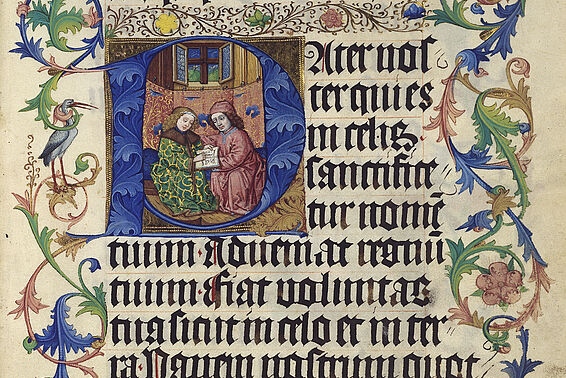 Pater nos
ter qui es
in celis
sanctifice
tur nomē
tuum. Adueniat regnū
tuum. Fiat voluntas
tua sicut in celo et in ter
ra. Panem nostrum quot